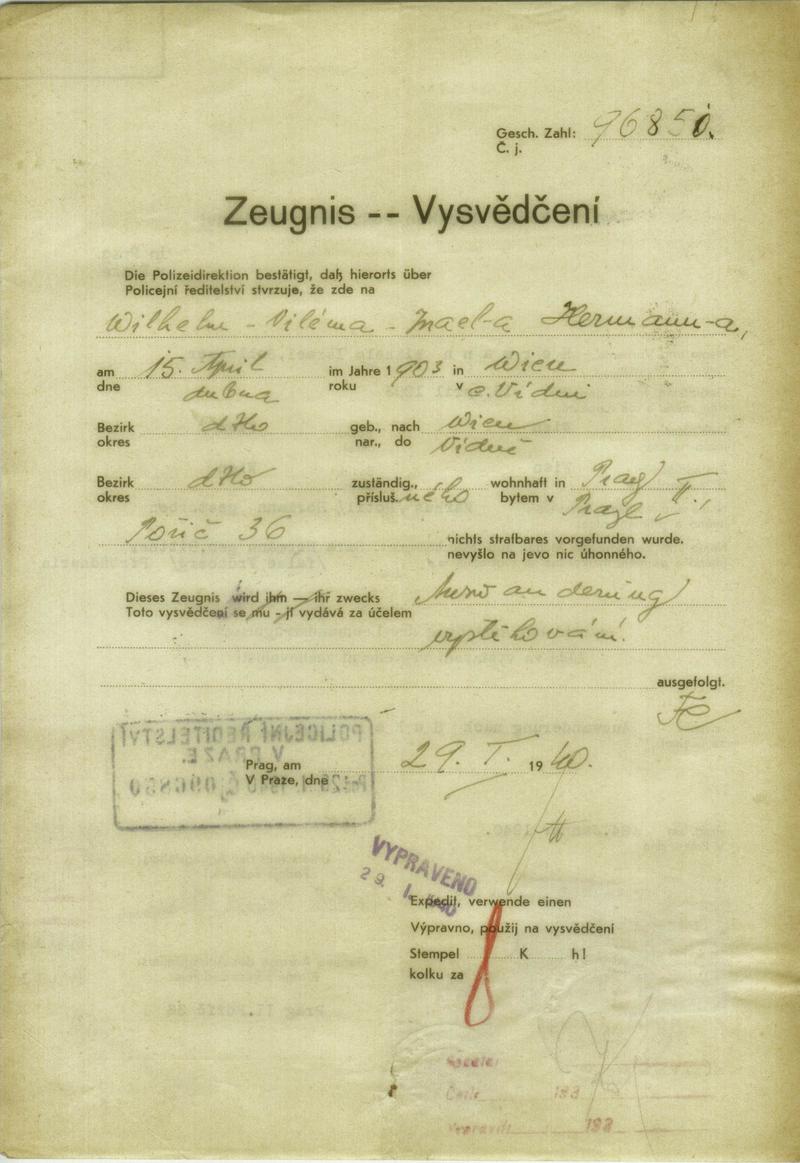 Gesch. Zahl: 96850.
Č. j.
Zeugnis -- Vysvědčení
Die Polizeidirektion bestätigt, daß hierorts über
Policejní ředitelství stvrzuje, že zde na
Wilhelm - Viléma - Israel-a Hermann-a,
am 15. April im Jahre 1903 in Wien
dne dubna roku v e. Vídni
Bezirk dtto geb., nach Wien
okres nar., do Vídně
Bezirk dtto zuständig., wohnhaft in Prag
okres přísluš.ného bytem v Praze II.,
Poříč 36 nichts strafbares vorgefunden wurde.
nevyšlo na jevo nic úhonného.
Dieses Zeugnis wird ihm — ihr zwecks
Toto vysvědčení se mu - jí vydává za účelem
vystěhování.
ausgefolgt.
POLICEJNÍ ŘEDITELSTVÍ
V PRAZE.
Prag, am 29. I. 1940.
V Praze, dne
VYPRAVENO
29. I. 1940
Expedit, verwende einen
Výpravno, použij na vysvědčení
Stempel K h!
kolku za